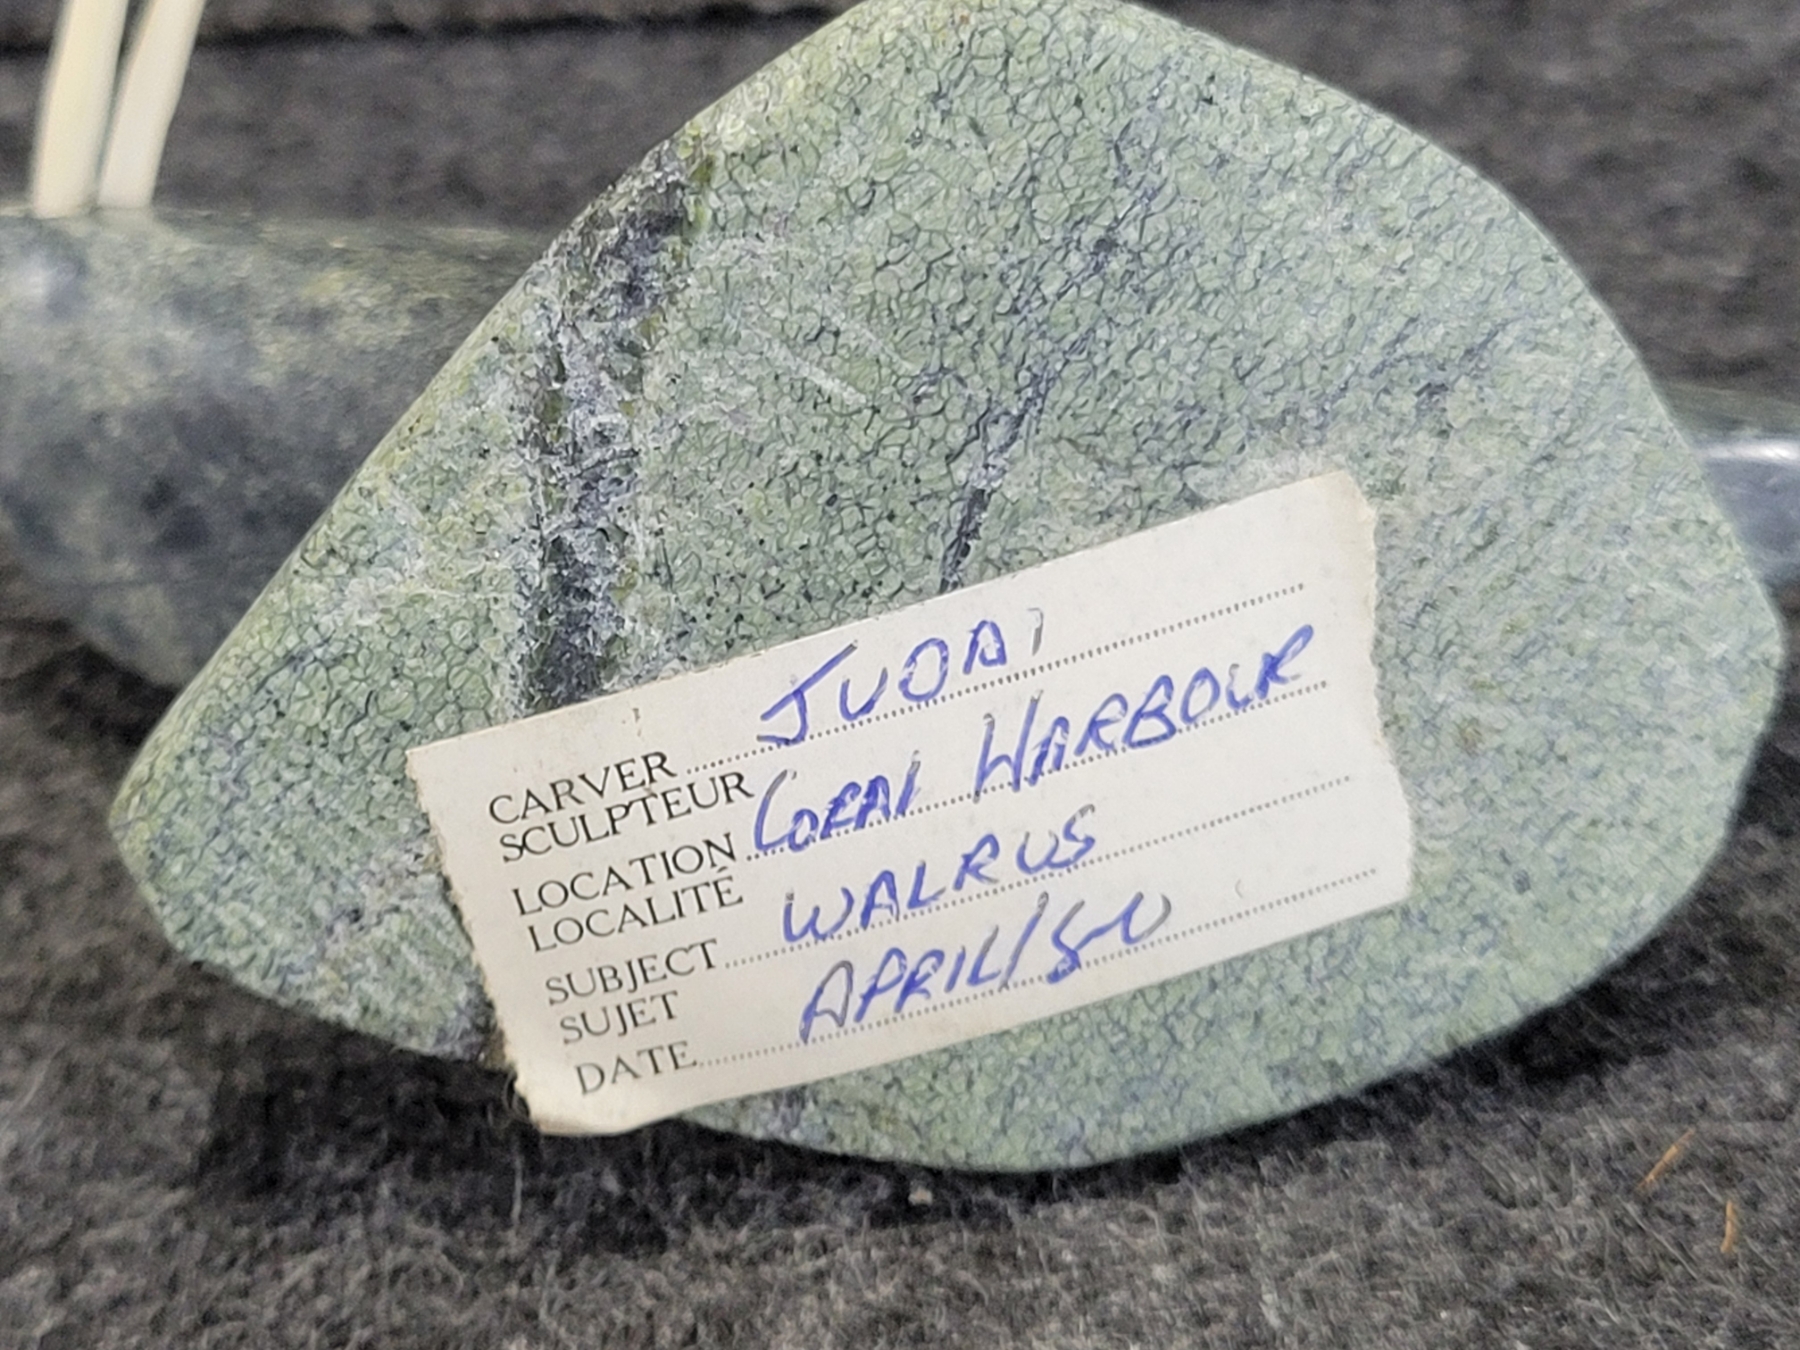 CARVER JUDAI
SCULPTEUR
LOCATION CORAL HARBOUR
LOCALITÉ
SUBJECT WALRUS
SUJET
DATE APRIL/80